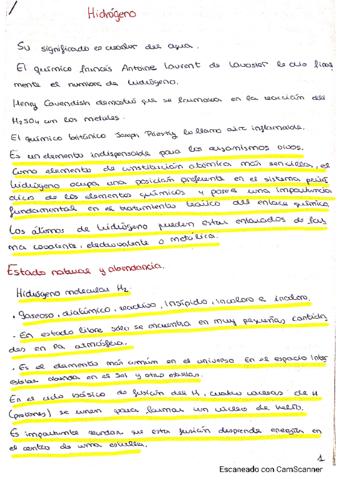 Hidrógeno
Su significado es creador del agua.
El químico francés Antoine Laurent de Lavoisier le dio final
mente el nombre de hidrógeno.
Henry Cavendish demostró que se formaba en la reacción del
H2SO4 con los metales.
El químico británico Joseph lo llamo aire inflamable.
Es un elemento indispensable para los organismos vivos.
Como elemento de constitución atómica más sencilla, el
hidrógeno ocupa una posición preferente en el sistema perió
dico de los elementos químicos y posee una importancia
fundamental en el tratamiento teórico del enlace químico.
Los átomos de hidrógeno pueden estar enlazados de for
ma covalente, electrovalente o metálica.
Estado natural y abundancia.
Hidrógeno molecular H2
· Gaseoso, diatómico, reactivo, insípido, incoloro e inodoro.
· En estado libre sólo se encuentra en muy pequeñas cantida
des en la atmósfera.
· Es el elemento más común en el universo. En el espacio inter
estelar abunda en el Sol y otras estrellas.
En el ciclo básico de fusión del H, cuatro núcleos de H
(protones) se unen para formar un núcleo de helio.
Es importante recordar que esta fusión desprende energía en
el centro de una estrella.
1
Escaneado con CamScanner